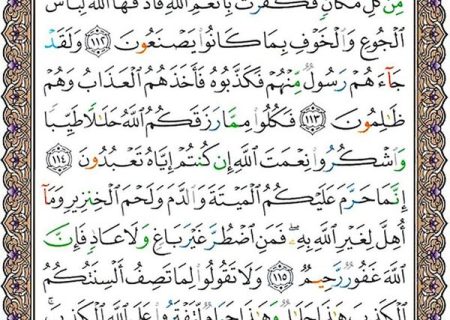 مِّن كُلِّ مَكَانٍ فَكَفَرَتْ بِأَنْعُمِ ٱللَّهِ فَأَذَٰقَهَا ٱللَّهُ لِبَاسَ
ٱلْجُوعِ وَٱلْخَوْفِ بِمَا كَانُوا۟ يَصْنَعُونَ ١١٢ وَلَقَدْ
جَآءَهُمْ رَسُولٌ مِّنْهُمْ فَكَذَّبُوهُ فَأَخَذَهُمُ ٱلْعَذَابُ وَهُمْ
ظَٰلِمُونَ ١١٣ فَكُلُوا۟ مِمَّا رَزَقَكُمُ ٱللَّهُ حَلَٰلًا طَيِّبًا
وَٱشْكُرُوا۟ نِعْمَتَ ٱللَّهِ إِن كُنتُمْ إِيَّاهُ تَعْبُدُونَ ١١٤
إِنَّمَا حَرَّمَ عَلَيْكُمُ ٱلْمَيْتَةَ وَٱلدَّمَ وَلَحْمَ ٱلْخِنزِيرِ وَمَآ
أُهِلَّ لِغَيْرِ ٱللَّهِ بِهِۦ فَمَنِ ٱضْطُرَّ غَيْرَ بَاغٍ وَلَا عَادٍ فَإِنَّ
ٱللَّهَ غَفُورٌ رَّحِيمٌ ١١٥ وَلَا تَقُولُوا۟ لِمَا تَصِفُ أَلْسِنَتُكُمُ
ٱلْكَذِبَ هَٰذَا حَلَٰلٌ وَهَٰذَا حَرَامٌ لِّتَفْتَرُوا۟ عَلَى ٱللَّهِ ٱلْكَذِبَ